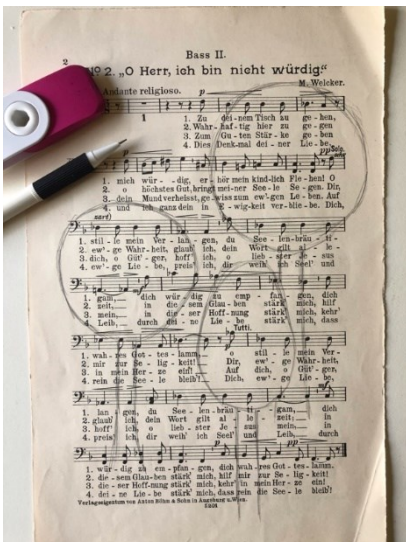 Bass II.
2
Nº 2. „O Herr, ich bin nicht würdig."
Andante religioso.
M. Welcker.
p
1
1. Zu dei-nem Tisch zu ge-hen,
2. Wahr-haf-tig hier zu ge-gen
3. Zum Gu-ten Stär-ke ge-ben
4. Dies Denk-mal dei-ner Lie-be,
p
pp Solo.
1. mich wür-dig, er-hör mein kind-lich Fleh-en! O
2. o höchstes Gut, bringt mei-ner See-le Se-gen. Dir,
3. dein Mund verheisst, ge-wiss zum ew'-gen Le-ben. Auf
4. und ich ganz dein in E-wig-keit ver-blie-be. Dich,
zart)
1. stil-le mein Ver-lan-gen, du See-len-bräu-ti-
2. ew'-ge Wahr-heit, glaub' ich, dein Wort gilt al-le-
3. dich, o Güt'-ger, hoff' ich, o lieb-ster Je-sus
4. ew'-ge Lie-be, preis' ich, dir weih' ich Seel' und
1. gam, dich wür-dig zu emp-fan-gen, dich
2. zeit, in die-sem Glau-ben stärk' mich, hilf
3. mein, in die-ser Hoff-nung stärk' mich, kehr'
4. Leib, durch dei-ne Lie-be stärk' mich, dass
Tutti.
1. wah-res Got-tes-lamm, o stil-le mein Ver-
2. mir zur Se-lig-keit! Dir, ew'-ge Wahr-heit,
3. in mein Her-ze ein! Auf dich, o Güt'-ger,
4. rein die See-le bleib'! Dich, ew'-ge Lie-be,
mf
1. lan-gen, du See-len-bräu-ti-gam, dich
2. glaub' ich, dein Wort gilt al-le-zeit; in
3. hoff' ich, o lieb-ster Je-sus mein, in
4. preis' ich, dir weih' ich Seel' und Leib, durch
pp
1. wür-dig zu em-pfan-gen, dich wah-res Got-tes-lamm.
2. die-sem Glau-ben stärk' mich, hilf mir zur Se-lig-keit!
3. die-ser Hoff-nung stärk' mich, kehr' in mein Her-ze ein!
4. dei-ne Lie-be stärk' mich, dass rein die See-le bleib'!
Verlagseigentum von Anton Böhm & Sohn in Augsburg u. Wien.